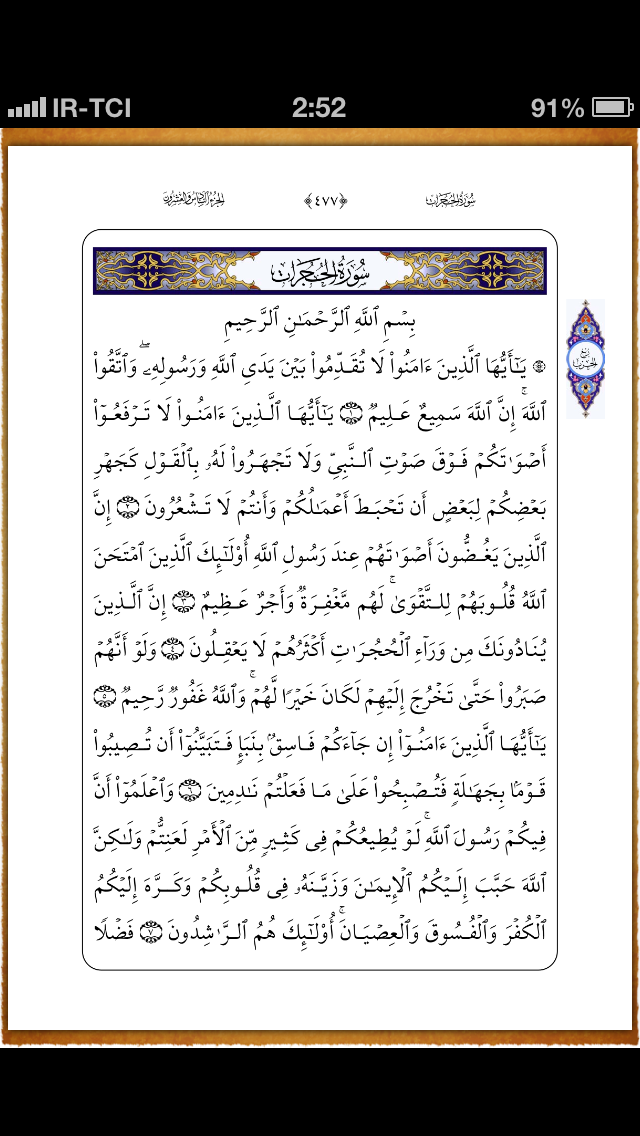 IR-TCI 2:52 91%
سُورَةُ الحُجُرَات ﴿٤٧٧﴾ الجُزْءُ السَّادِسُ وَالعِشْرُونَ
سُورَةُ الحُجُرَات
بِسۡمِ ٱللَّهِ ٱلرَّحۡمَـٰنِ ٱلرَّحِيمِ
۞ يَـٰٓأَيُّهَا ٱلَّذِينَ ءَامَنُوا۟ لَا تُقَدِّمُوا۟ بَيۡنَ يَدَىِ ٱللَّهِ وَرَسُولِهِۦۖ وَٱتَّقُوا۟
ٱللَّهَۚ إِنَّ ٱللَّهَ سَمِيعٌ عَلِيمٌ ١ يَـٰٓأَيُّهَا ٱلَّذِينَ ءَامَنُوا۟ لَا تَرۡفَعُوٓا۟
أَصۡوَٰتَكُمۡ فَوۡقَ صَوۡتِ ٱلنَّبِىِّ وَلَا تَجۡهَرُوا۟ لَهُۥ بِٱلۡقَوۡلِ كَجَهۡرِ
بَعۡضِكُمۡ لِبَعۡضٍ أَن تَحۡبَطَ أَعۡمَـٰلُكُمۡ وَأَنتُمۡ لَا تَشۡعُرُونَ ٢ إِنَّ
ٱلَّذِينَ يَغُضُّونَ أَصۡوَٰتَهُمۡ عِندَ رَسُولِ ٱللَّهِ أُو۟لَـٰٓئِكَ ٱلَّذِينَ ٱمۡتَحَنَ
ٱللَّهُ قُلُوبَهُمۡ لِلتَّقۡوَىٰۚ لَهُم مَّغۡفِرَةٌ وَأَجۡرٌ عَظِيمٌ ٣ إِنَّ ٱلَّذِينَ
يُنَادُونَكَ مِن وَرَآءِ ٱلۡحُجُرَٰتِ أَكۡثَرُهُمۡ لَا يَعۡقِلُونَ ٤ وَلَوۡ أَنَّهُمۡ
صَبَرُوا۟ حَتَّىٰ تَخۡرُجَ إِلَيۡهِمۡ لَكَانَ خَيۡرًا لَّهُمۡۚ وَٱللَّهُ غَفُورٌ رَّحِيمٌ ٥
يَـٰٓأَيُّهَا ٱلَّذِينَ ءَامَنُوٓا۟ إِن جَآءَكُمۡ فَاسِقٌۢ بِنَبَإٍ فَتَبَيَّنُوٓا۟ أَن تُصِيبُوا۟
قَوۡمًۢا بِجَهَـٰلَةٍ فَتُصۡبِحُوا۟ عَلَىٰ مَا فَعَلۡتُمۡ نَـٰدِمِينَ ٦ وَٱعۡلَمُوٓا۟ أَنَّ
فِيكُمۡ رَسُولَ ٱللَّهِۚ لَوۡ يُطِيعُكُمۡ فِى كَثِيرٍ مِّنَ ٱلۡأَمۡرِ لَعَنِتُّمۡ وَلَـٰكِنَّ
ٱللَّهَ حَبَّبَ إِلَيۡكُمُ ٱلۡإِيمَـٰنَ وَزَيَّنَهُۥ فِى قُلُوبِكُمۡ وَكَرَّهَ إِلَيۡكُمُ
ٱلۡكُفۡرَ وَٱلۡفُسُوقَ وَٱلۡعِصۡيَانَۚ أُو۟لَـٰٓئِكَ هُمُ ٱلرَّٰشِدُونَ ٧ فَضۡلًا